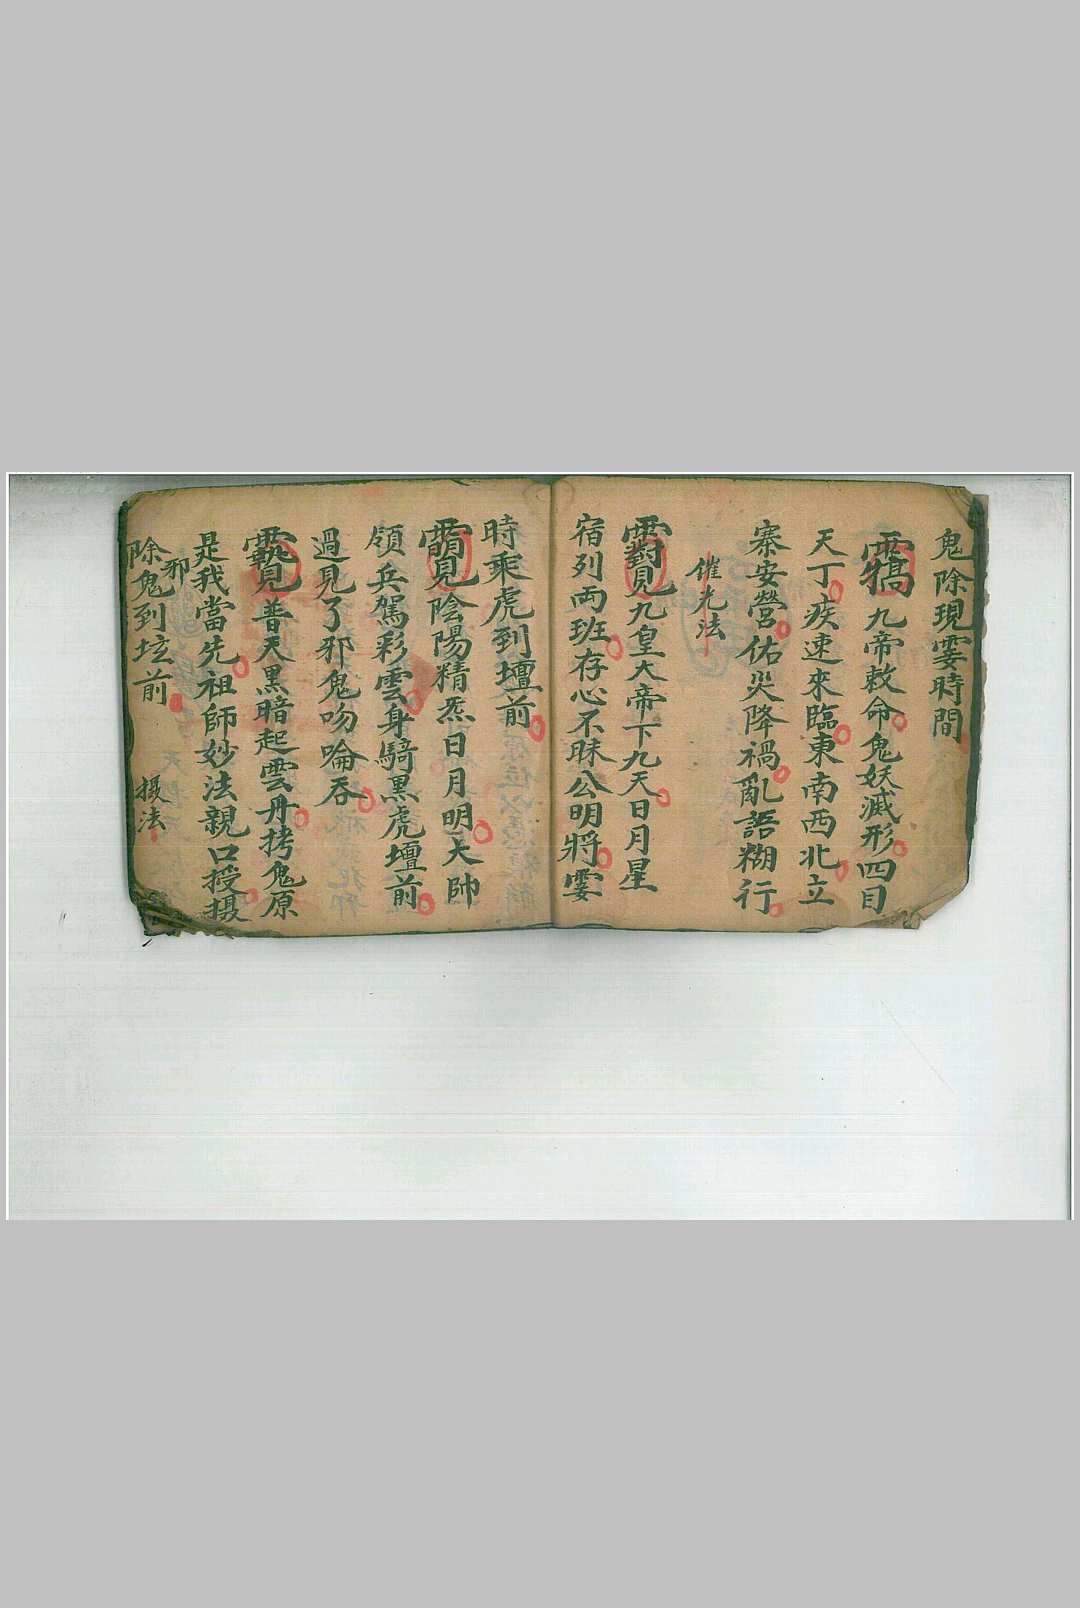 鬼除現霎時間
九帝敕命鬼妖滅形四目
天丁疾速來臨東南西北立
寨安營佑災降禍亂語糊行
催光法
九皇大帝下九天日月星
宿列両班存心不昧公明將霎
時乘虎到壇前
陰陽精炁日月明天帥
領兵駕彩雲身騎黑虎壇前
過見了邪鬼吻喻吞
普天黑暗起雲丹拷鬼原
是我當先祖師妙法親口授攝
邪
除鬼到坛前
摄法